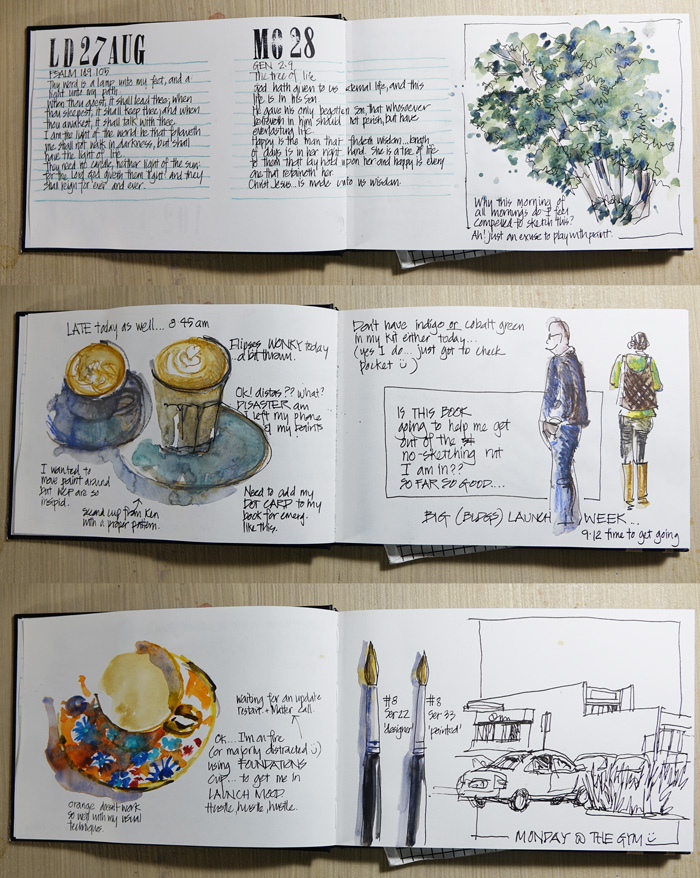 LD 27 AUG
PSALM 119.105
Thy word is a lamp unto my feet, and a
light unto my path
When thou goest, it shall lead thee; when
thou sleepest, it shall keep thee; and when
thou awakest, it shall talk with thee
I am the light of the world: he that followeth
me shall not walk in darkness, but shall
have the light of life.
They need no candle, neither light of the sun;
for the Lord God giveth them light: and they
shall reign for ever and ever.
MO 28
GEN 2.9
The tree of life
God hath given to us eternal life, and this
life is in his son
He gave his only begotten son, that whosoever
believeth in him should not perish, but have
everlasting life.
Happy is the man that findeth wisdom...length
of days is in her right hand. She is a tree of life
to them that lay hold upon her and happy is every
one that retaineth her.
Christ Jesus...is made unto us wisdom.
Why this morning of
all mornings do I feel
compelled to sketch this?
Ah! just an excuse to play with paint.
LATE today as well... 8.45am
Elipses WONKY today
..a bit thrown.
OK! distos?? What?
DISASTER am
I left my phone
& my paints
I wanted to
move paint around
but WCP are so
insipid.
second cup from Ken
with a proper pattern.
Need to add my
DOT CARD to my
book for emerg.
like this.
Don't have indigo or cobalt green
in my kit either today...
(yes I do... just got to check
pocket ü)
IS THIS BOOK
going to help me get
out of the
no-sketching rut
I am in??
SO FAR SO GOOD....
BIG (BLDGS) LAUNCH WEEK...
9.12 time to get going
orange doesn't work
so well with my usual
technique.
Waiting for an update
restart + Matter call.
OK.... I'm on fire
(or majorly distracted ü)
using FOUNDATIONS
cup... to get me in
LAUNCH MOOD.
Hustle, hustle, hustle..
#8
Ser 22
designer
#8
Ser 33
'pointed'
MONDAY @ THE GYM ü